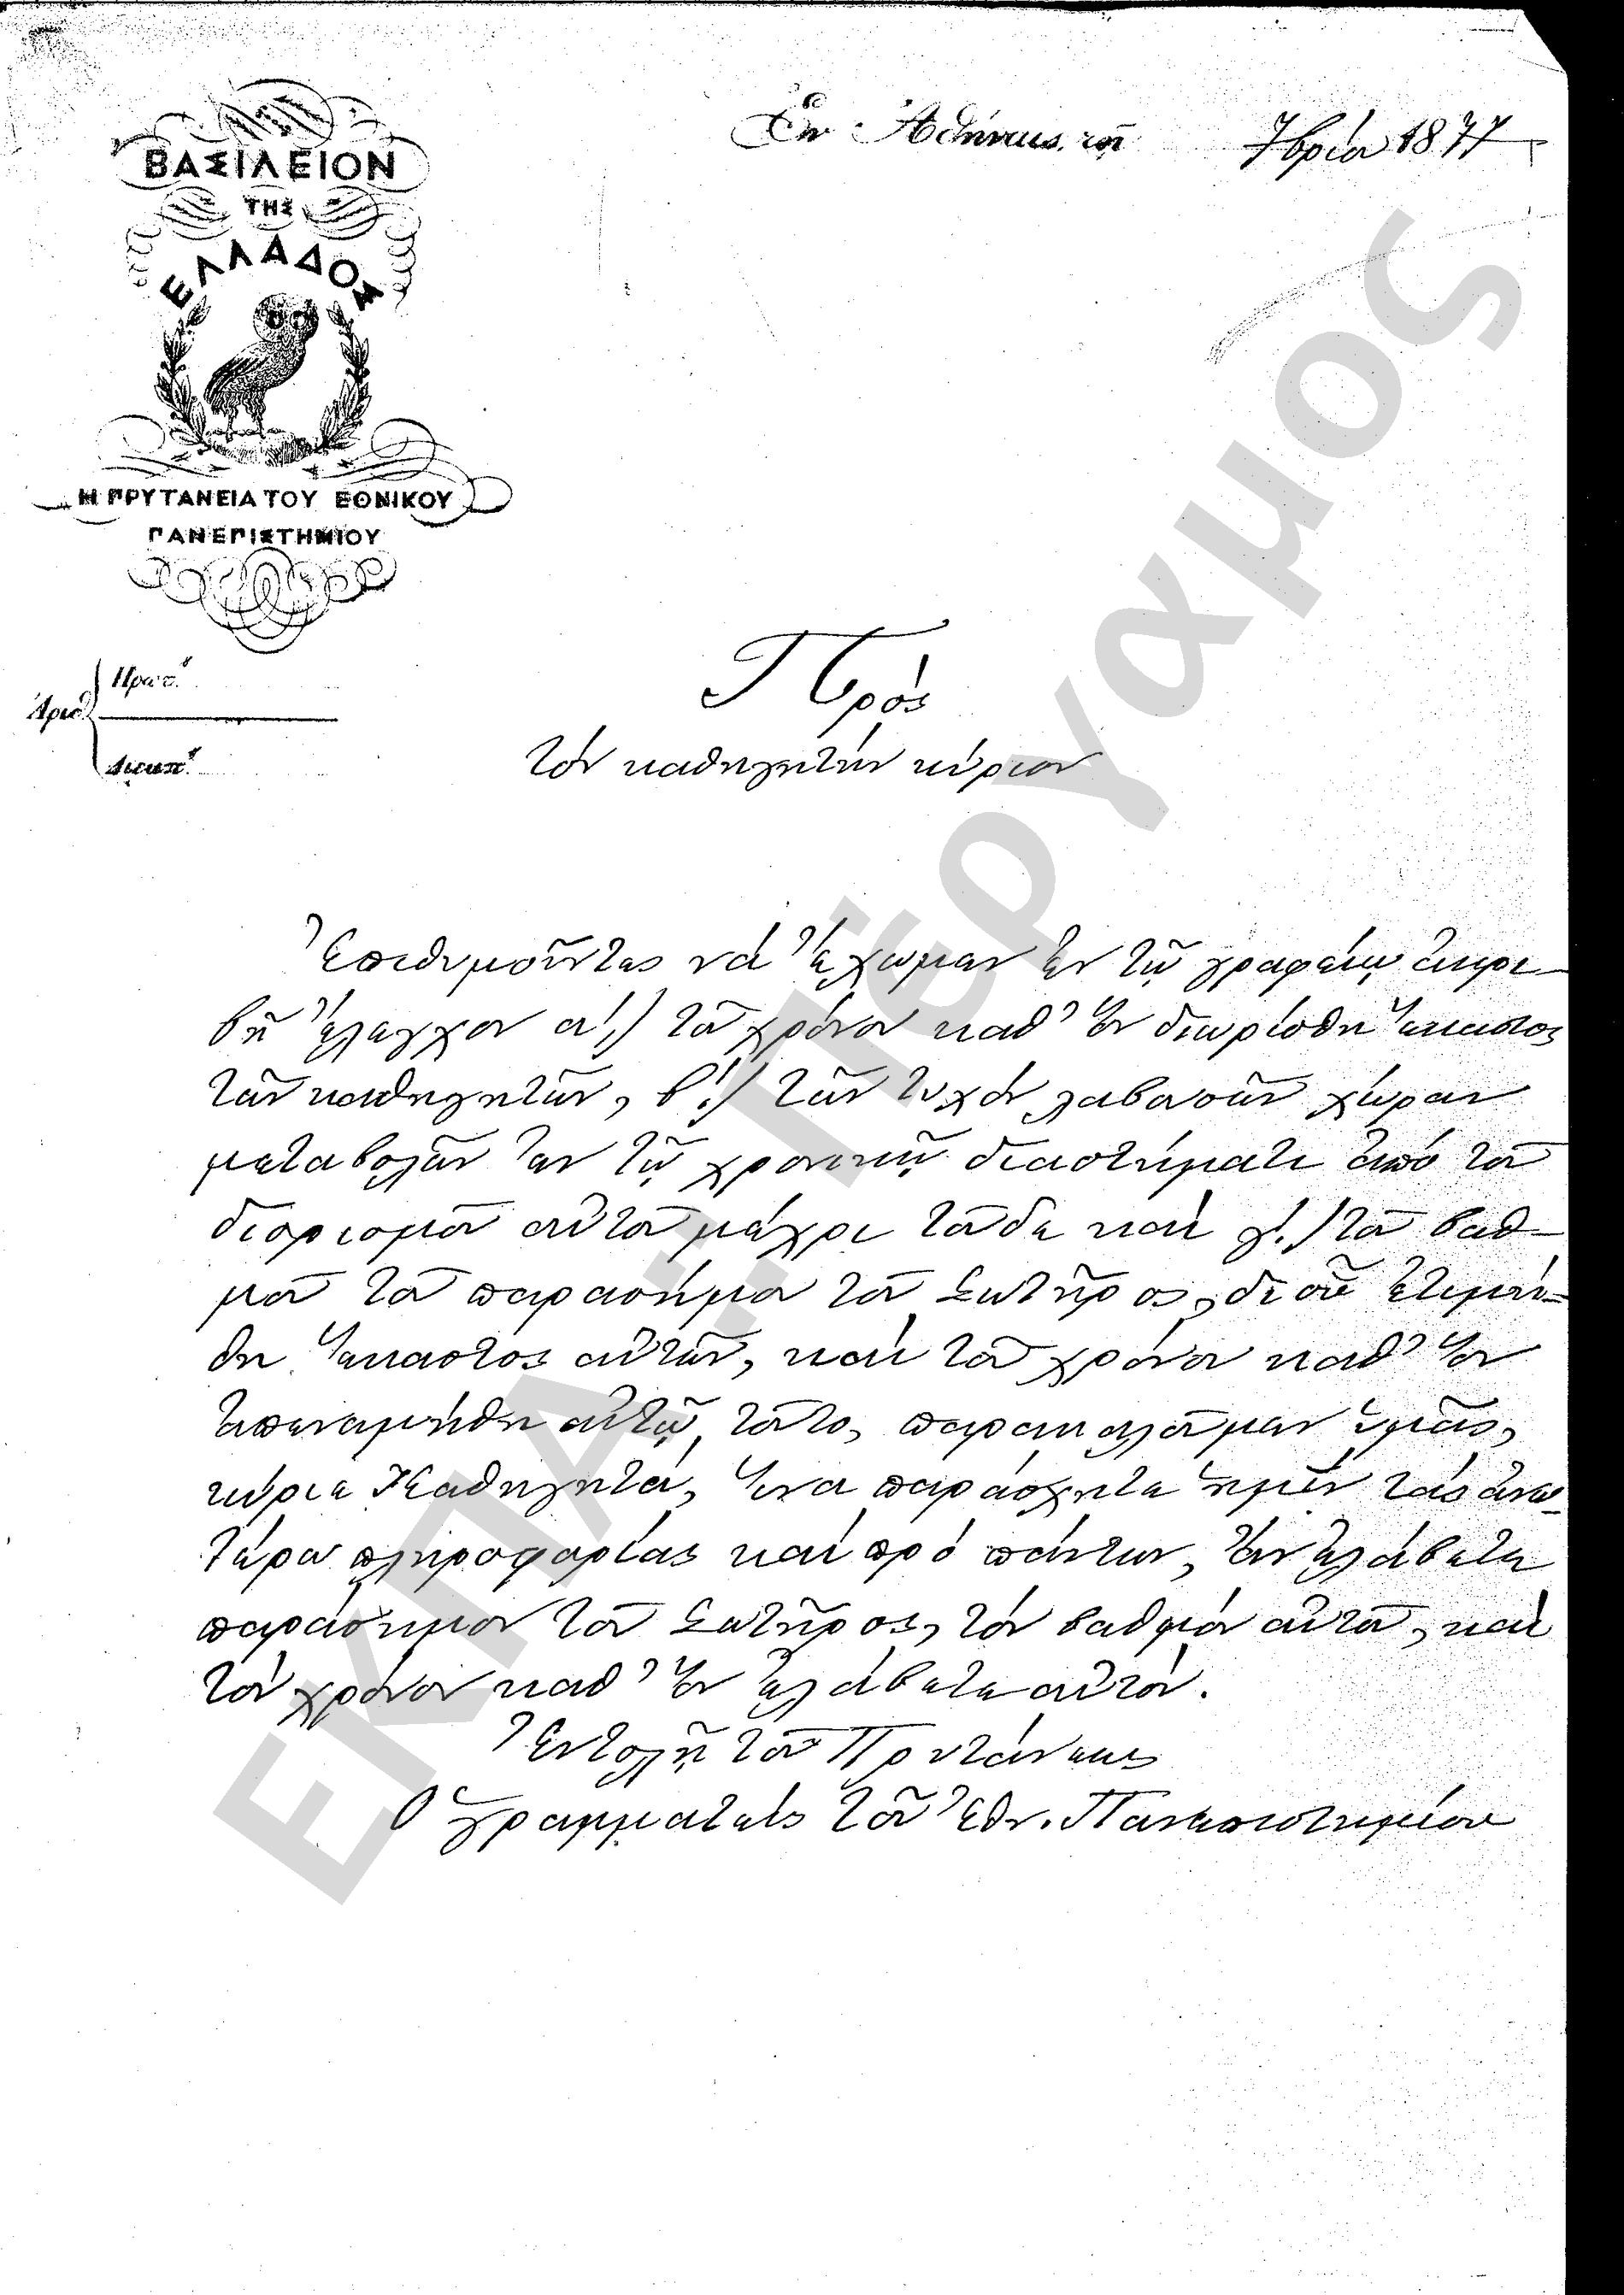 Ἐν Ἀθήναις τῇ 7βρίου 1877
ΒΑΣΙΛΕΙΟΝ
ΤΗΣ
ΕΛΛΑΔΟΣ
Η ΠΡΥΤΑΝΕΙΑ ΤΟΥ ΕΘΝΙΚΟΥ
ΠΑΝΕΠΙΣΤΗΜΙΟΥ
Πρωτ.
Ἀριθ.
Διεκπ.
Πρός
τόν καθηγητήν κύριον
Ἐπιθυμοῦντες νά ἔχωμεν ἐν τῷ γραφείῳ ἀκρι-
βῆ ἔλεγχον α!) τοῦ χρόνου καθ' ὅν διωρίσθη ἕκαστος
τῶν καθηγητῶν, β!) τῶν τυχόν λαβουσῶν χώραν
μεταβολῶν ἐν τῷ χρονικῷ διαστήματι ἀπό τοῦ
διορισμοῦ αὐτοῦ μέχρι τοῦδε καί γ!) τοῦ βαθ-
μοῦ τοῦ παρασήμου τοῦ Σωτῆρος, δι' οὗ ἐτιμή-
θη ἕκαστος αὐτῶν, καί τοῦ χρόνου καθ' ὅν
ἀπενεμήθη αὐτῷ τοῦτο, παρακαλοῦμεν ὑμᾶς,
κύριε Καθηγητά, ἵνα παράσχητε ἡμῖν τάς ἀνω-
τέρω πληροφορίας καί πρό πάντων, ἄν ἐλάβετε
παράσημον τοῦ Σωτῆρος, τόν βαθμόν αὐτοῦ, καί
τόν χρόνον καθ' ὅν ἐλάβετε αὐτόν.
Ἐντολῇ τοῦ Πρυτάνεως
Ὁ γραμματεύς τοῦ Ἐθν. Πανεπιστημίου
ΕΚΠΑ... Πέργαμος